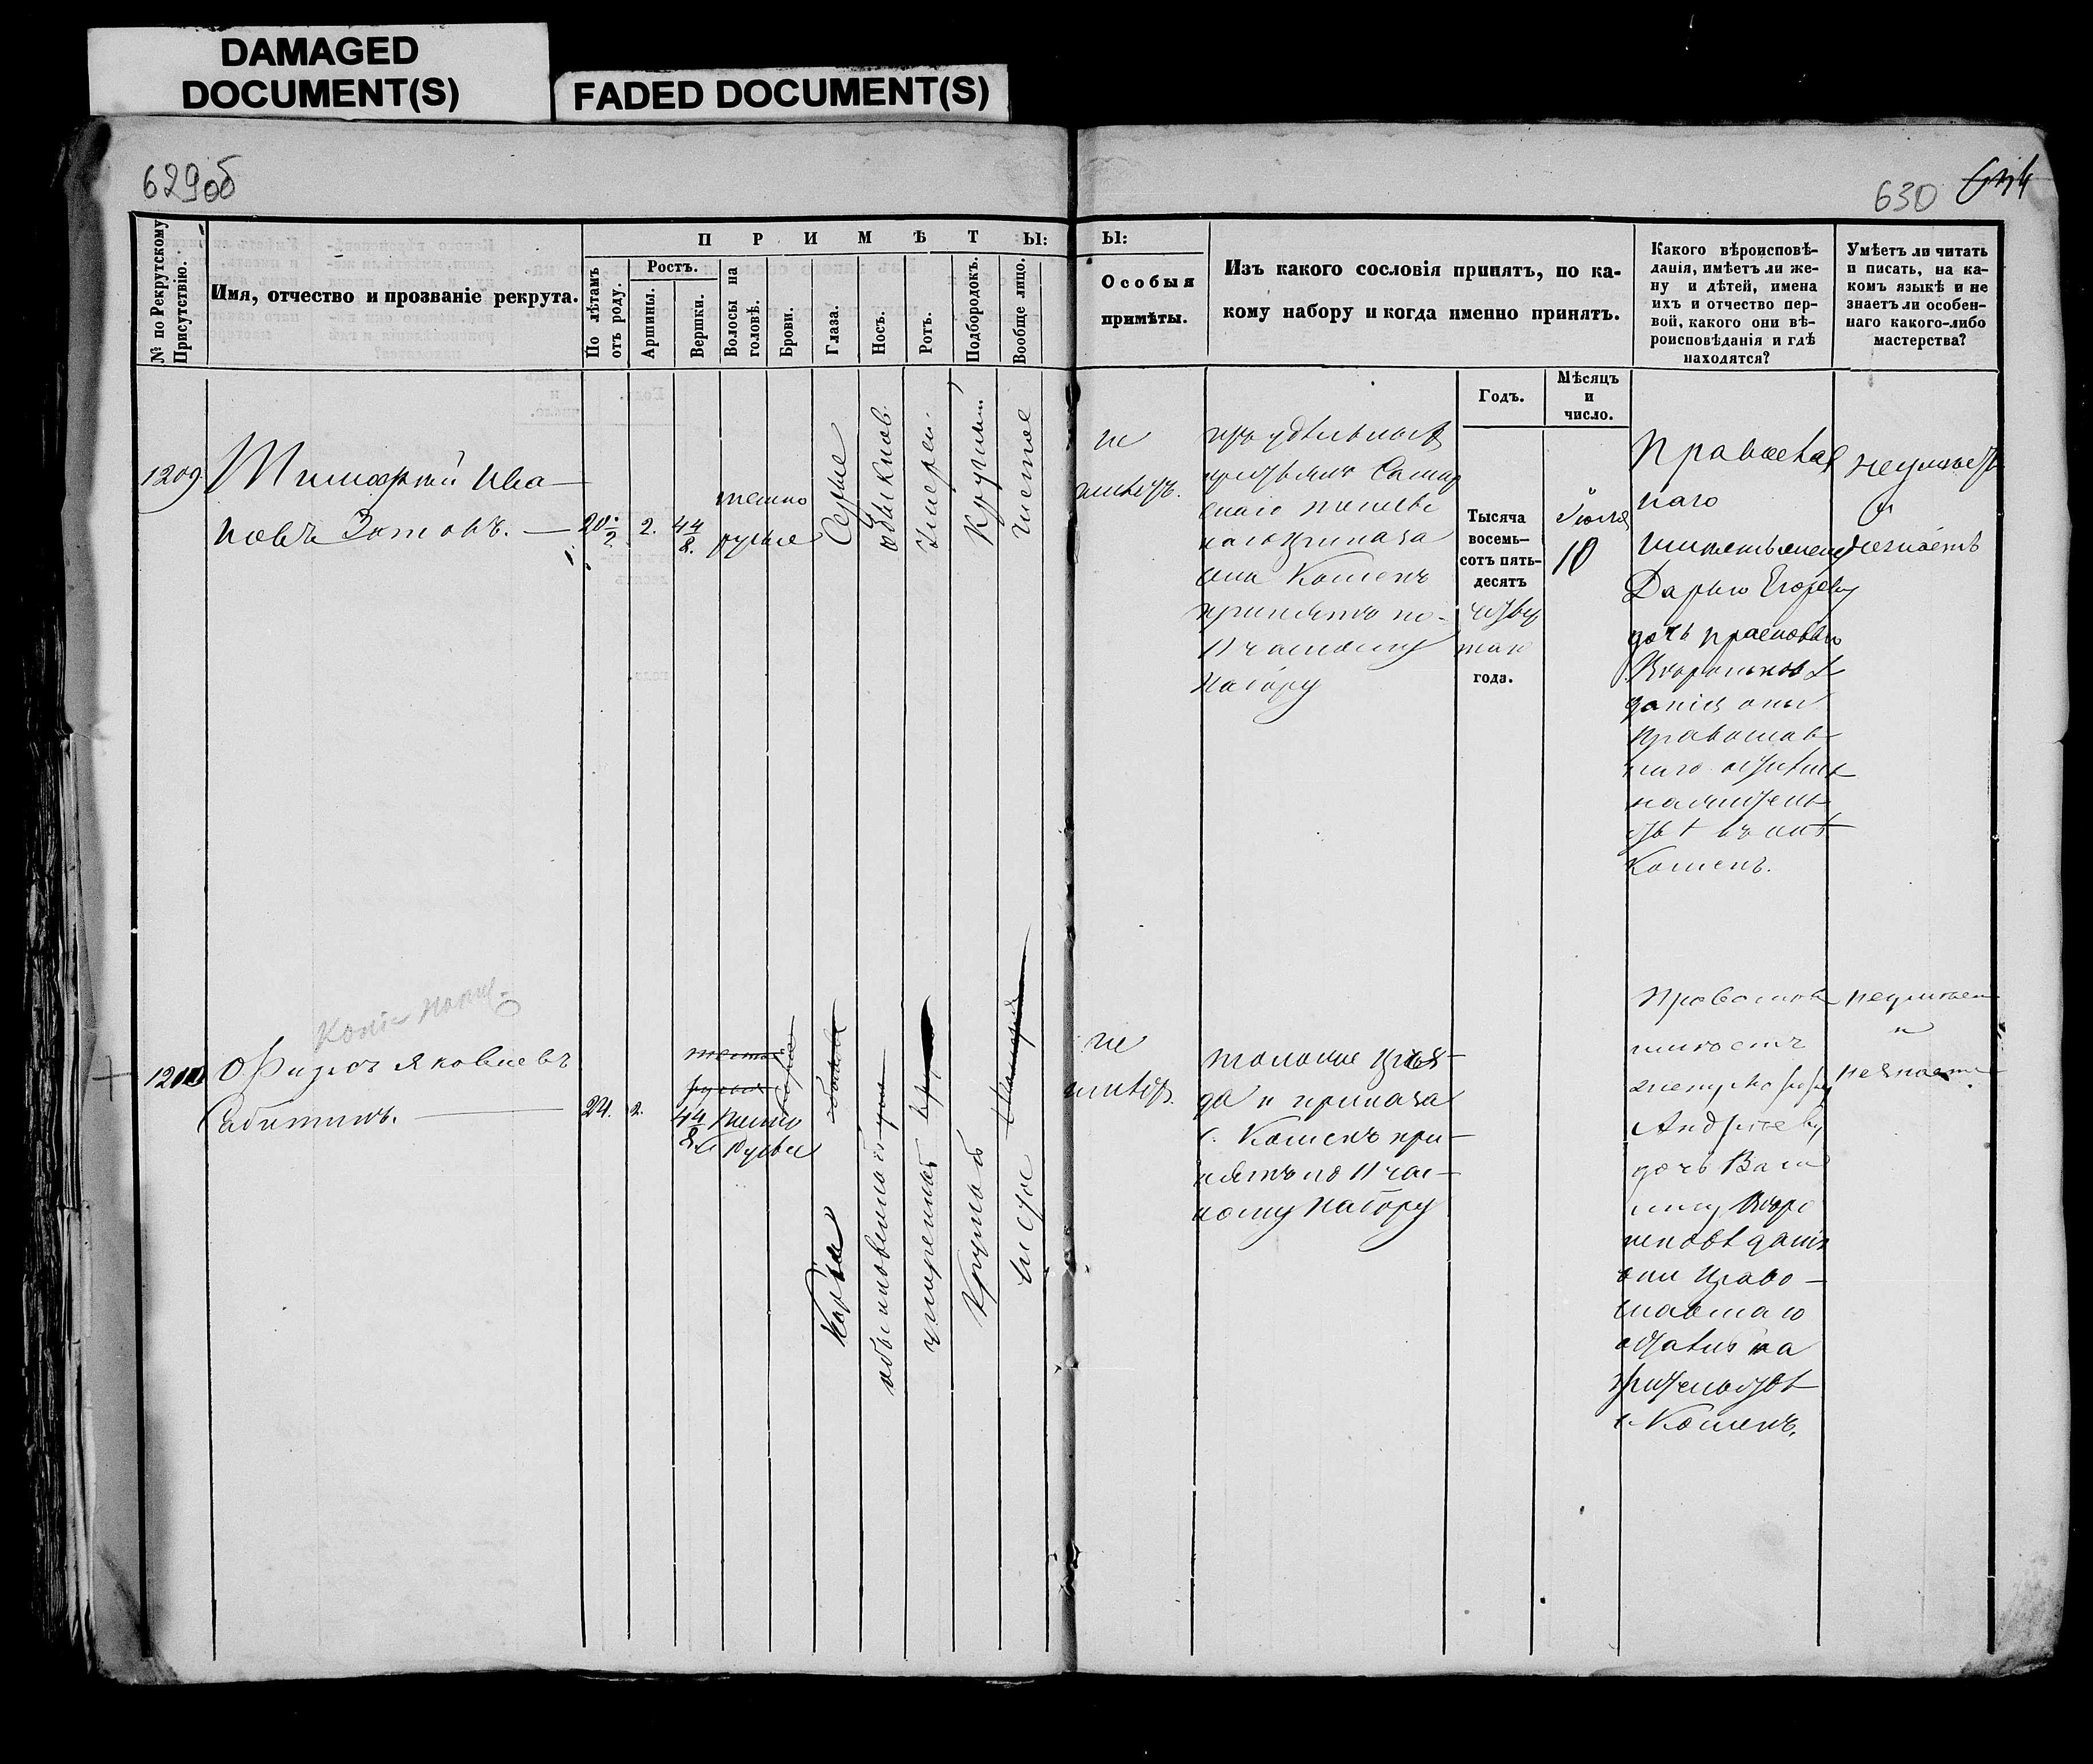 DAMAGED
DOCUMENT(S)
FADED DOCUMENT(S)
629об
630
№ по Рекрутскому Присутствію.
Имя, отчество и прозваніе рекрута.
ПРИМѢТЫ:
По лѣтамъ отъ роду.
Ростъ.
Аршины.
Вершки.
Волосы на головѣ.
Брови.
Глаза.
Носъ.
Ротъ.
Подбородокъ.
Вообще лицо.
Ы:
Особыя
примѣты.
Изъ какого сословія принятъ, по ка-
кому набору и когда именно принятъ.
Годъ.
Мѣсяцъ
и
число.
Какого вѣроисповѣ-
данія, имѣетъ ли же-
ну и дѣтей, имена
ихъ и отчество пер-
вой, какого они вѣ-
роисповѣданія и гдѣ
находятся?
Умѣетъ ли читать
и писать, на ка-
комъ языкѣ и не
знаетъ ли особен-
наго какого-либо
мастерства?
1209
Тимофей Ива-
новъ Зотовъ.
20 1/2
2.
4 4/8
темно
русые
Серые
обыкнов.
Умерен.
Круглый
чистое
не
имѣетъ.
изъ удѣльныхъ
крестьянъ Самар
скаго
наго приказа
села Кошекъ
принятъ по
11 частному
набору
Тысяча
восемь-
сотъ пять-
десятъ
четвер
таго
года.
Іюля
10
Православ
наго
имѣетъ жену
Дарью Егорову
дочь Прасковью
Вѣроисповѣ
данія они
православ
наго
на жительс
твѣ въ селѣ
Кошекъ.
неумѣетъ
и
незнаетъ
Яковлевъ
24.
2.
4 4/8
темно
Русые
Каріе
обыкновенный
умеренный
Круглый
чистое
не
имѣетъ.
тогоже уѣз-
да и приказа
с. Кошекъ при-
нятъ по 11 час-
ному набору
Православ
жену
Андрееву
дочь
Вѣро
исповѣданія
они Право-
славнаго
на
жительствѣ
с. Кошекъ.
неумѣет
и
незнает